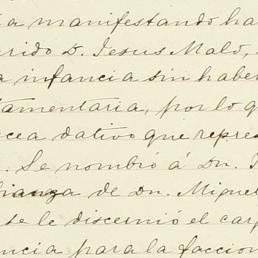 ia manifestando ha
rido D. Jesus Malo,
a infancia sin haber
tamentaria, por lo q
cea dativo que repres
. Se nombró á Dn.
fianza de Dn. Miguel
se le discernió el carg
ncia para la faccion